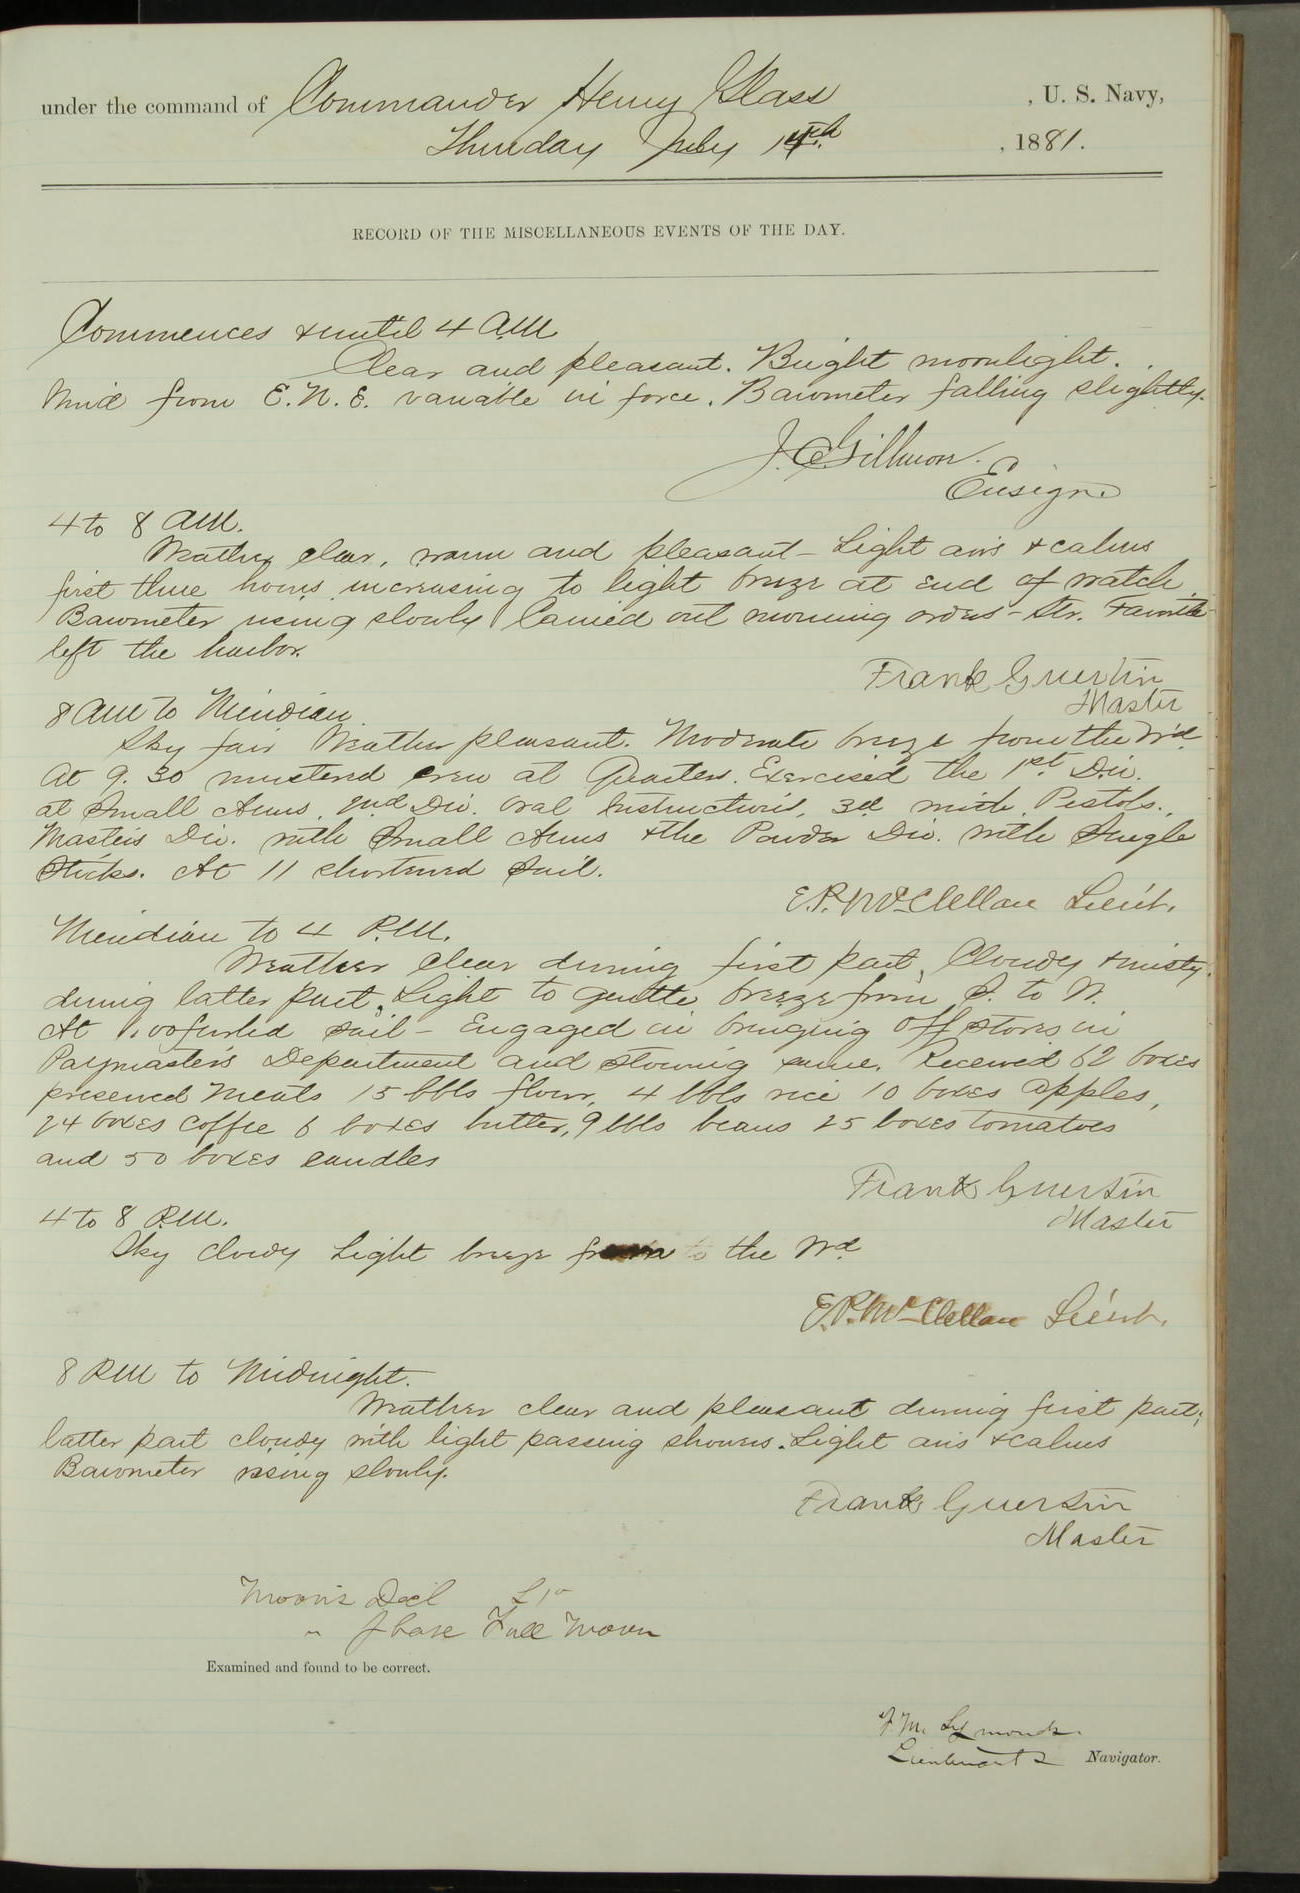 under the command of Commander Henry Glass , U. S. Navy,
Thursday July 14th , 1881.
RECORD OF THE MISCELLANEOUS EVENTS OF THE DAY.
Commences & until 4 A.M.
Clear and pleasant. Bright moonlight.
Wind from E.N.E. variable in force. Barometer falling slightly.
J.C. Gillmore.
Ensign
4 to 8 A.M.
Weather clear, warm and pleasant – Light airs & calms
first three hours increasing to light breeze at end of watch
Barometer rising slowly Carried out morning orders – Str. Favorite
left the harbor.
Frank Guertin
Master
8 AM to Meridian
Sky fair Weather pleasant. Moderate breeze from the Wd.
At 9.30 mustered crew at Quarters. Exercised the 1st Div.
at Small Arms, 2nd Div. Oral Instructions, 3d with Pistols.,
Master's Div. with Small Arms & the Powder Div. with Single
Sticks. At 11 shortened Sail.
E.P. McClellan Lieut.
Meridian to 4 P.M.
Weather clear during first part, Cloudy & misty
during latter part, Light to gentle breeze from S. to W.
At 1.00 furled sail – Engaged in bringing off stores in
Paymaster's Department and stowing same. Received 62 boxes
preserved meats 15 bbls flour, 4 bbls rice 10 boxes apples,
24 boxes coffee 6 boxes butter, 9 bbls beans 25 boxes tomatoes
and 50 boxes candles
Frank Guertin
Master
4 to 8 P.M.
Sky clowdy Light breeze from to the Wd
E.P. McClellan Lieut.
8 PM to Midnight.
Weather clear and pleasant during first part;
latter part cloudy with light passing showers. Light airs & calms
Barometer rising slowly.
Frank Guertin
Master
Moon's Decl
" phase Full Moon
Examined and found to be correct.
F.M. Symonds.
Lieutenant & Navigator.